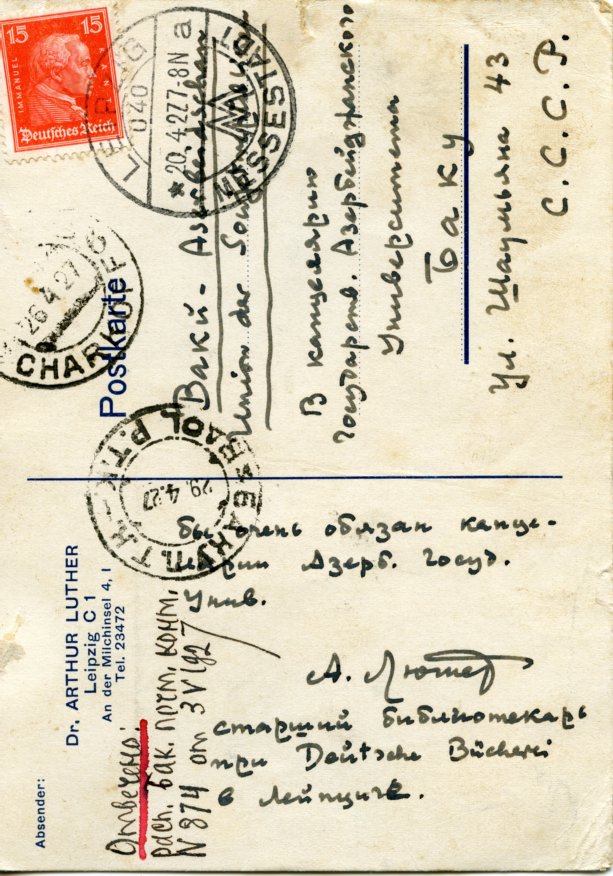 15 15
IMMANUEL
Deutsches Reich
LEIPZIG
040
* 20.4.27.7-8N a
MESSESTADT
26.4.27
CHARLOF
Postkarte
Баки - Aserbeidschan
Union der
В канцелярию
государств. Азербейджанского
Университета
Баку
ул. Шаумьяна 43
С. С. С. Р.
29.4.27
БАКУ П.Т.К.
Absender:
Dr. ARTHUR LUTHER
Leipzig C 1
An der Milchinsel 4, I
Tel. 23472
Отвечено:
расп. бак. почт. конт.
N 874 от 3 V 1927
бы очень обязан канце-
лярии Азерб. Госуд.
Унив.
А. Лютер
старший библиотекарь
при Deutsche Bücherei
в Лейпциге.